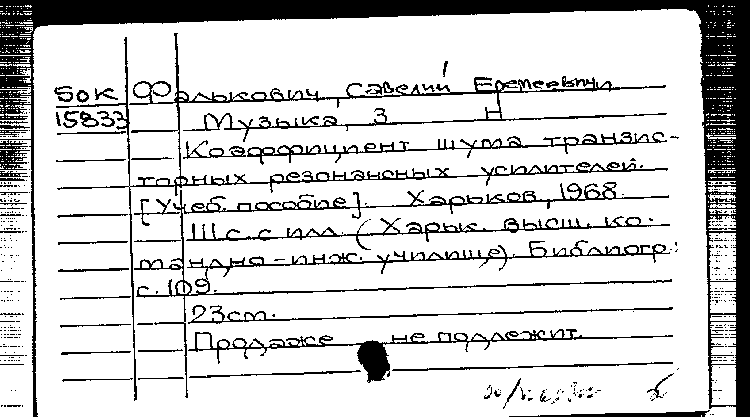 Бок Фалькович, Савелий Еремеевич и
15833 Музыка, З Н
Коэффициент шума транзис-
торных резонансных усилителей.
[Учеб. пособие]. Харьков, 1968.
111 с. с илл. (Харьк. высш. ко-
мандно-инж. училище). Библиогр.:
с. 109.
23 см.
Продаже не подлежит.